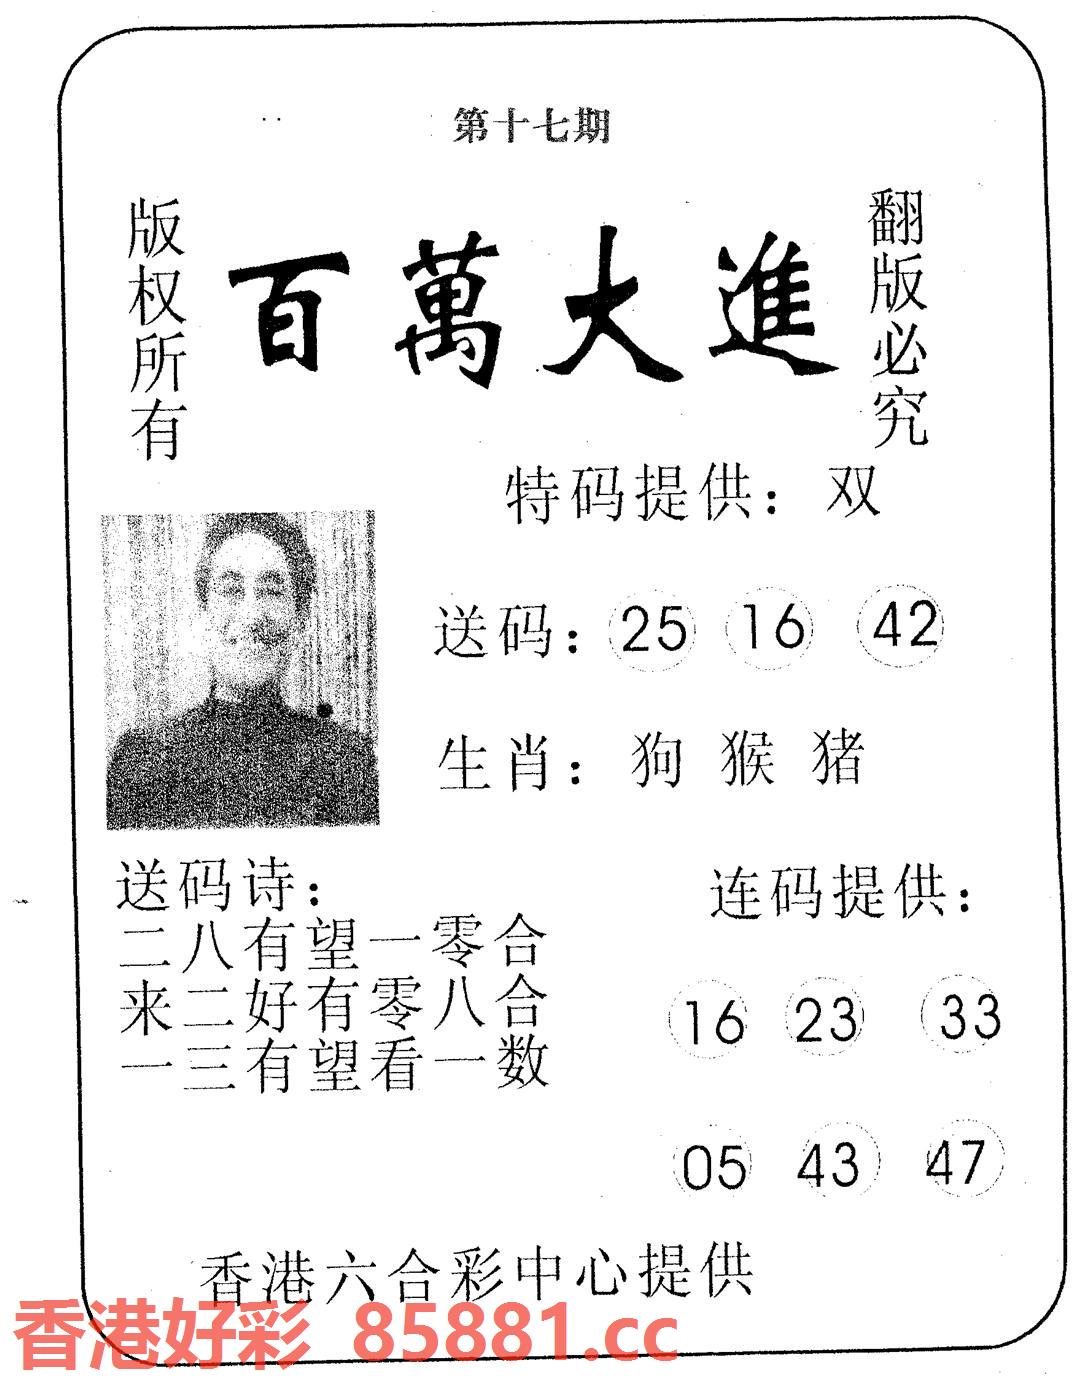 第十七期
版权所有
百萬大進
翻版必究
特码提供：双
送码：25 16 42
生肖：狗 猴 猪
送码诗：
二八有望一零合
来二好有零八合
一三有望看一数
连码提供：
16 23 33
05 43 47
香港六合彩中心提供
香港好彩 85881.cc